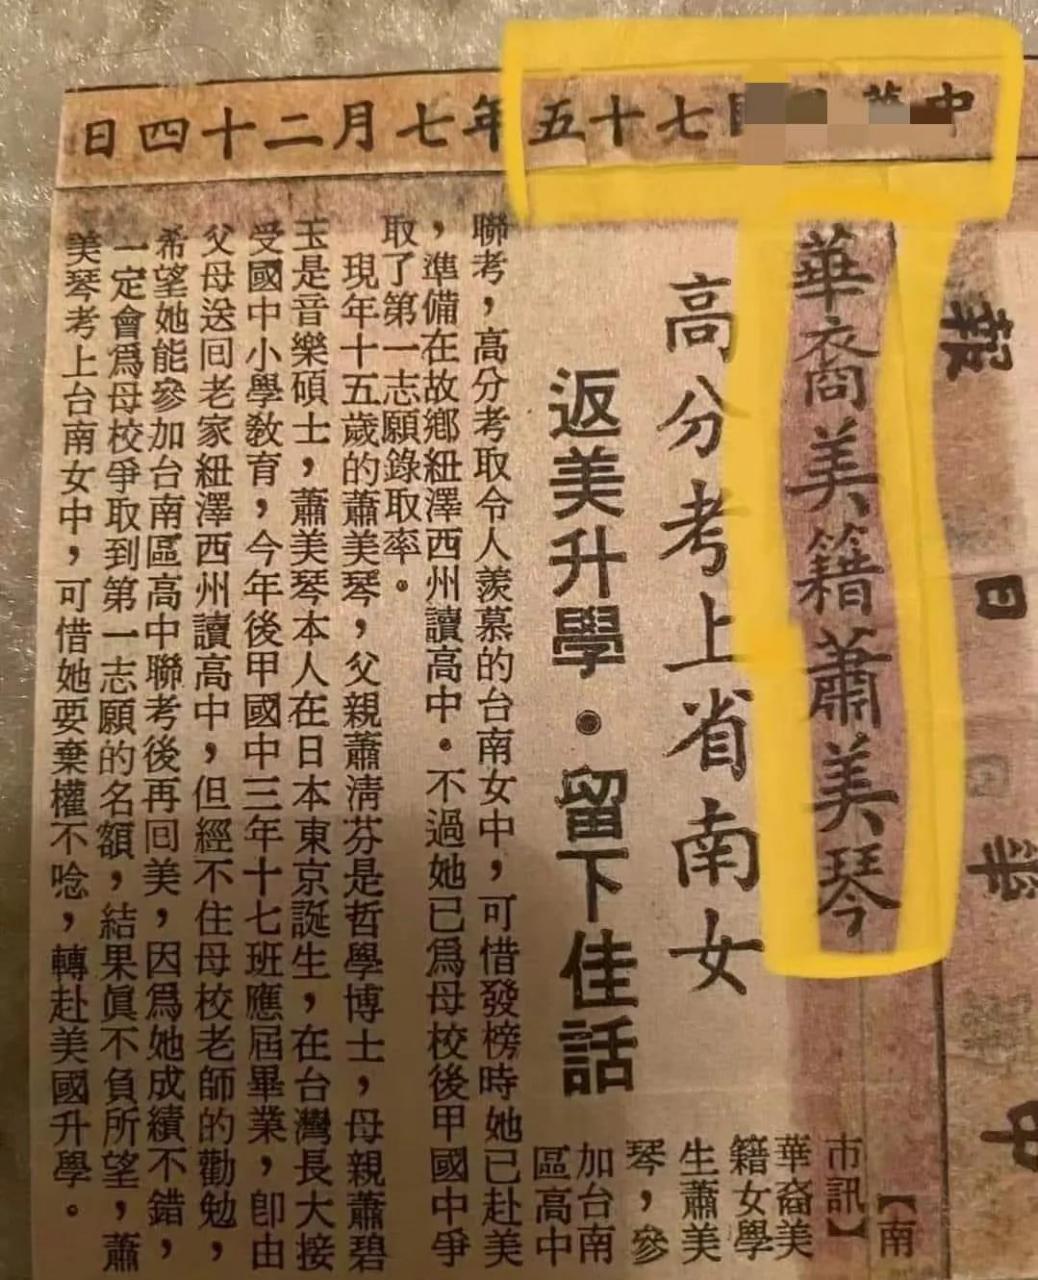 中七十五年七月二十四日
中華日報
華裔美籍蕭美琴
高分考上省南女
返美升學・留下佳話
【南
市訊】
華裔美
籍女學
生蕭美
琴，參
加台南
區高中
聯考，高分考取令人羨慕的台南女中，可惜發榜時她已赴美
，準備在故鄉紐澤西州讀高中。不過她已爲母校後甲國中爭
取了第一志願錄取率。
現年十五歲的蕭美琴，父親蕭清芬是哲學博士，母親蕭碧
玉是音樂碩士，蕭美琴本人在日本東京誕生，在台灣長大接
受國中小學敎育，今年後甲國中三年十七班應屆畢業，卽由
父母送回老家紐澤西州讀高中，但經不住母校老師的勸勉，
希望她能參加台南區高中聯考後再回美，因爲她成績不錯，
一定會爲母校爭取到第一志願的名額，結果眞不負所望，蕭
美琴考上台南女中，可惜她要棄權不唸，轉赴美國升學。